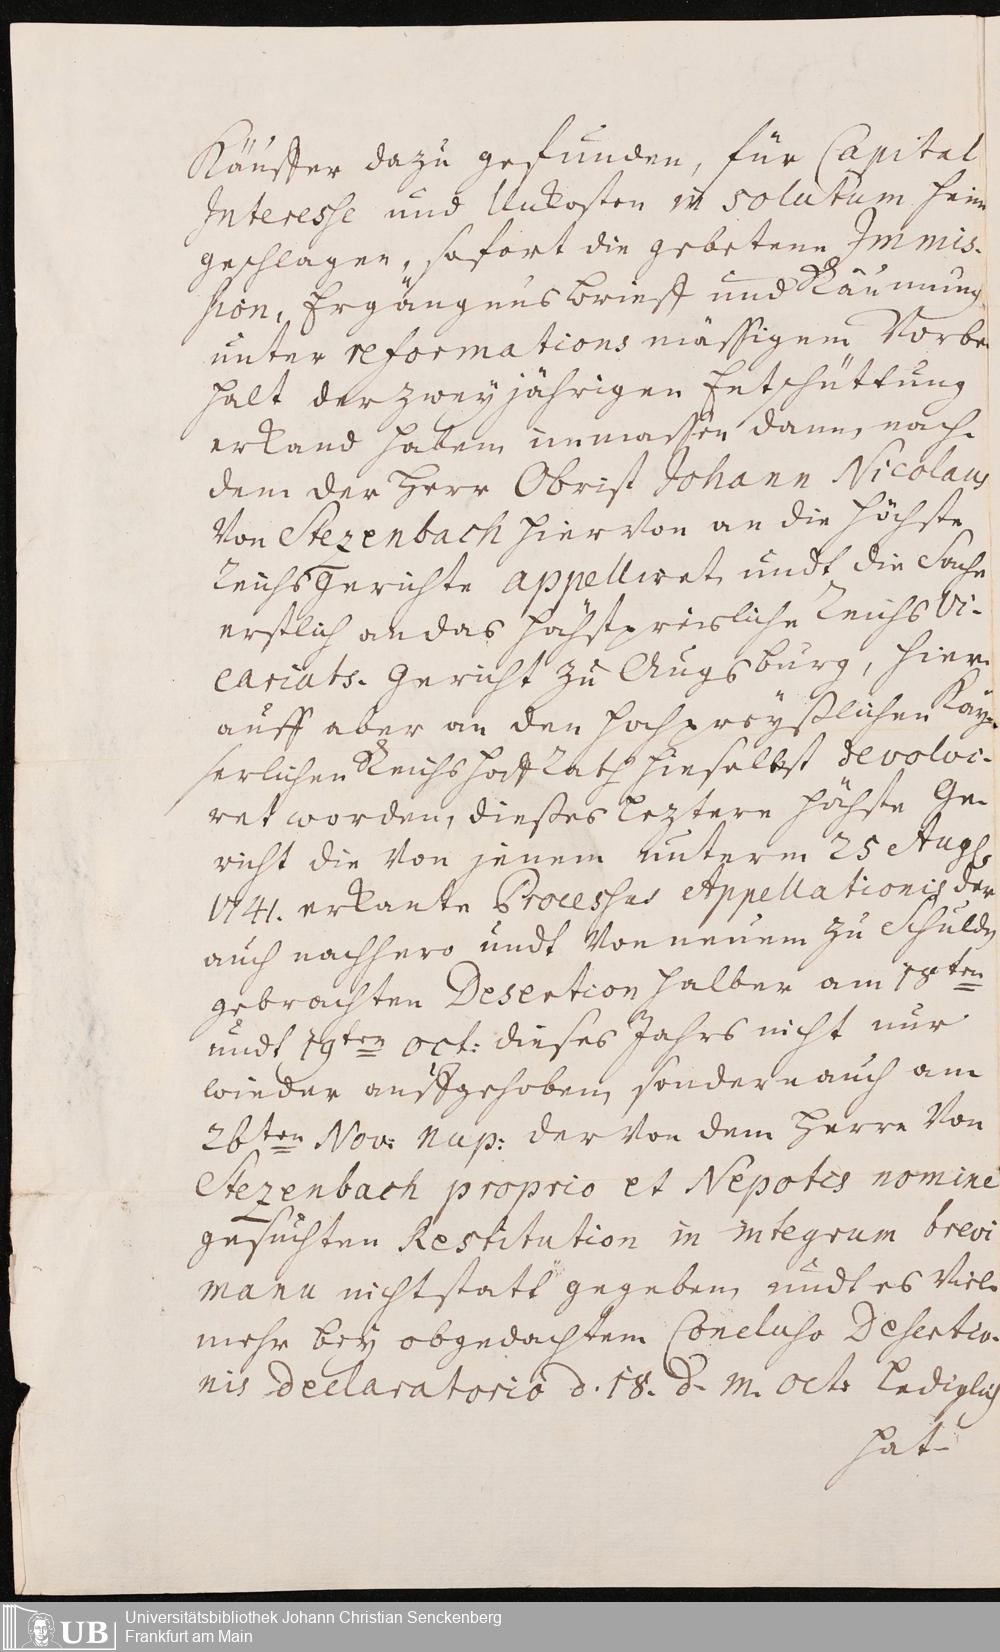 Käuffer dazu gefunden, für Capital
Interesse und Unkosten in solutum heim
geschlagen, sofort die gebetene Immis-
sion, Ergängnusbrieff und Räumung
unter reformations mässigem Vorbe-
halt der zweyjährigen Entschüttung
erkand haben, inmassen dann, nach-
dem der Herr Obrist Johann Nicolaus
Von Stezenbach hiervon an die höchste
Reichsgerichte appelliret, undt die Sache
erstlich an das höchstpreisliche Reichs Vi-
cariats-Gericht zu Augsburg, hier-
auff aber an den hochpreyßlichen Käy-
serlichen Reichshoff Rath hieselbst devolvi-
ret worden, dießes leztere höchste Ge-
richt die von jenem unterm 25 Aug.
1741. erkante Processus Appellationis der
auch nachhero undt von neuem zu Schulden
gebrachten Desertion halber am 18ten
undt 19ten Oct: dieses Jahrs nicht nur
wieder auffgehoben, sondern auch am
26ten Nov: nup: der von dem Herrn Von
Stezenbach proprio et Nepotis nomine
gesuchten Restitution in integrum brevi
manu nicht statt gegeben, undt es viel-
mehr bey obgedachtem Concluso Desertio-
nis declaratorio d. 18. d. m. Oct: lediglich
hat
UB
Universitätsbibliothek Johann Christian Senckenberg
Frankfurt am Main